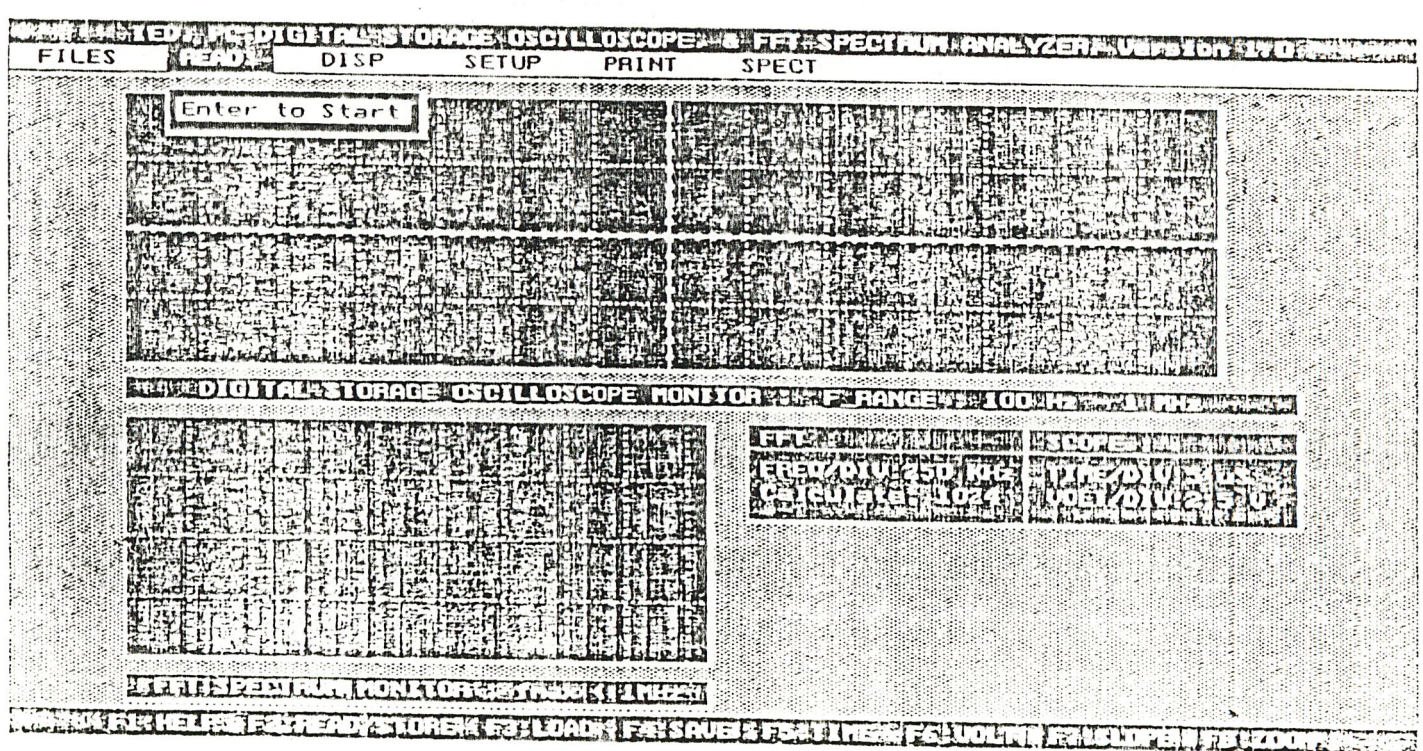 (ED) PC DIGITAL STORAGE OSCILLOSCOPE & FFT SPECTRUM ANALYZER Version 1.0
FILES READ DISP SETUP PRINT SPECT
Enter to Start
DIGITAL STORAGE OSCILLOSCOPE MONITOR F_RANGE 100 Hz 1 MHz
FFT SCOPE
FREQ/DIV 250 KHz TIME/DIV US
Calculate 1024 VOLT/DIV 2.5 V
FFT SPECTRUM MONITOR 1 MHz
F1 HELP F2 READ STORE F3 LOAD F4 SAVE F5 TIME F6 VOLT F8 ZOOM